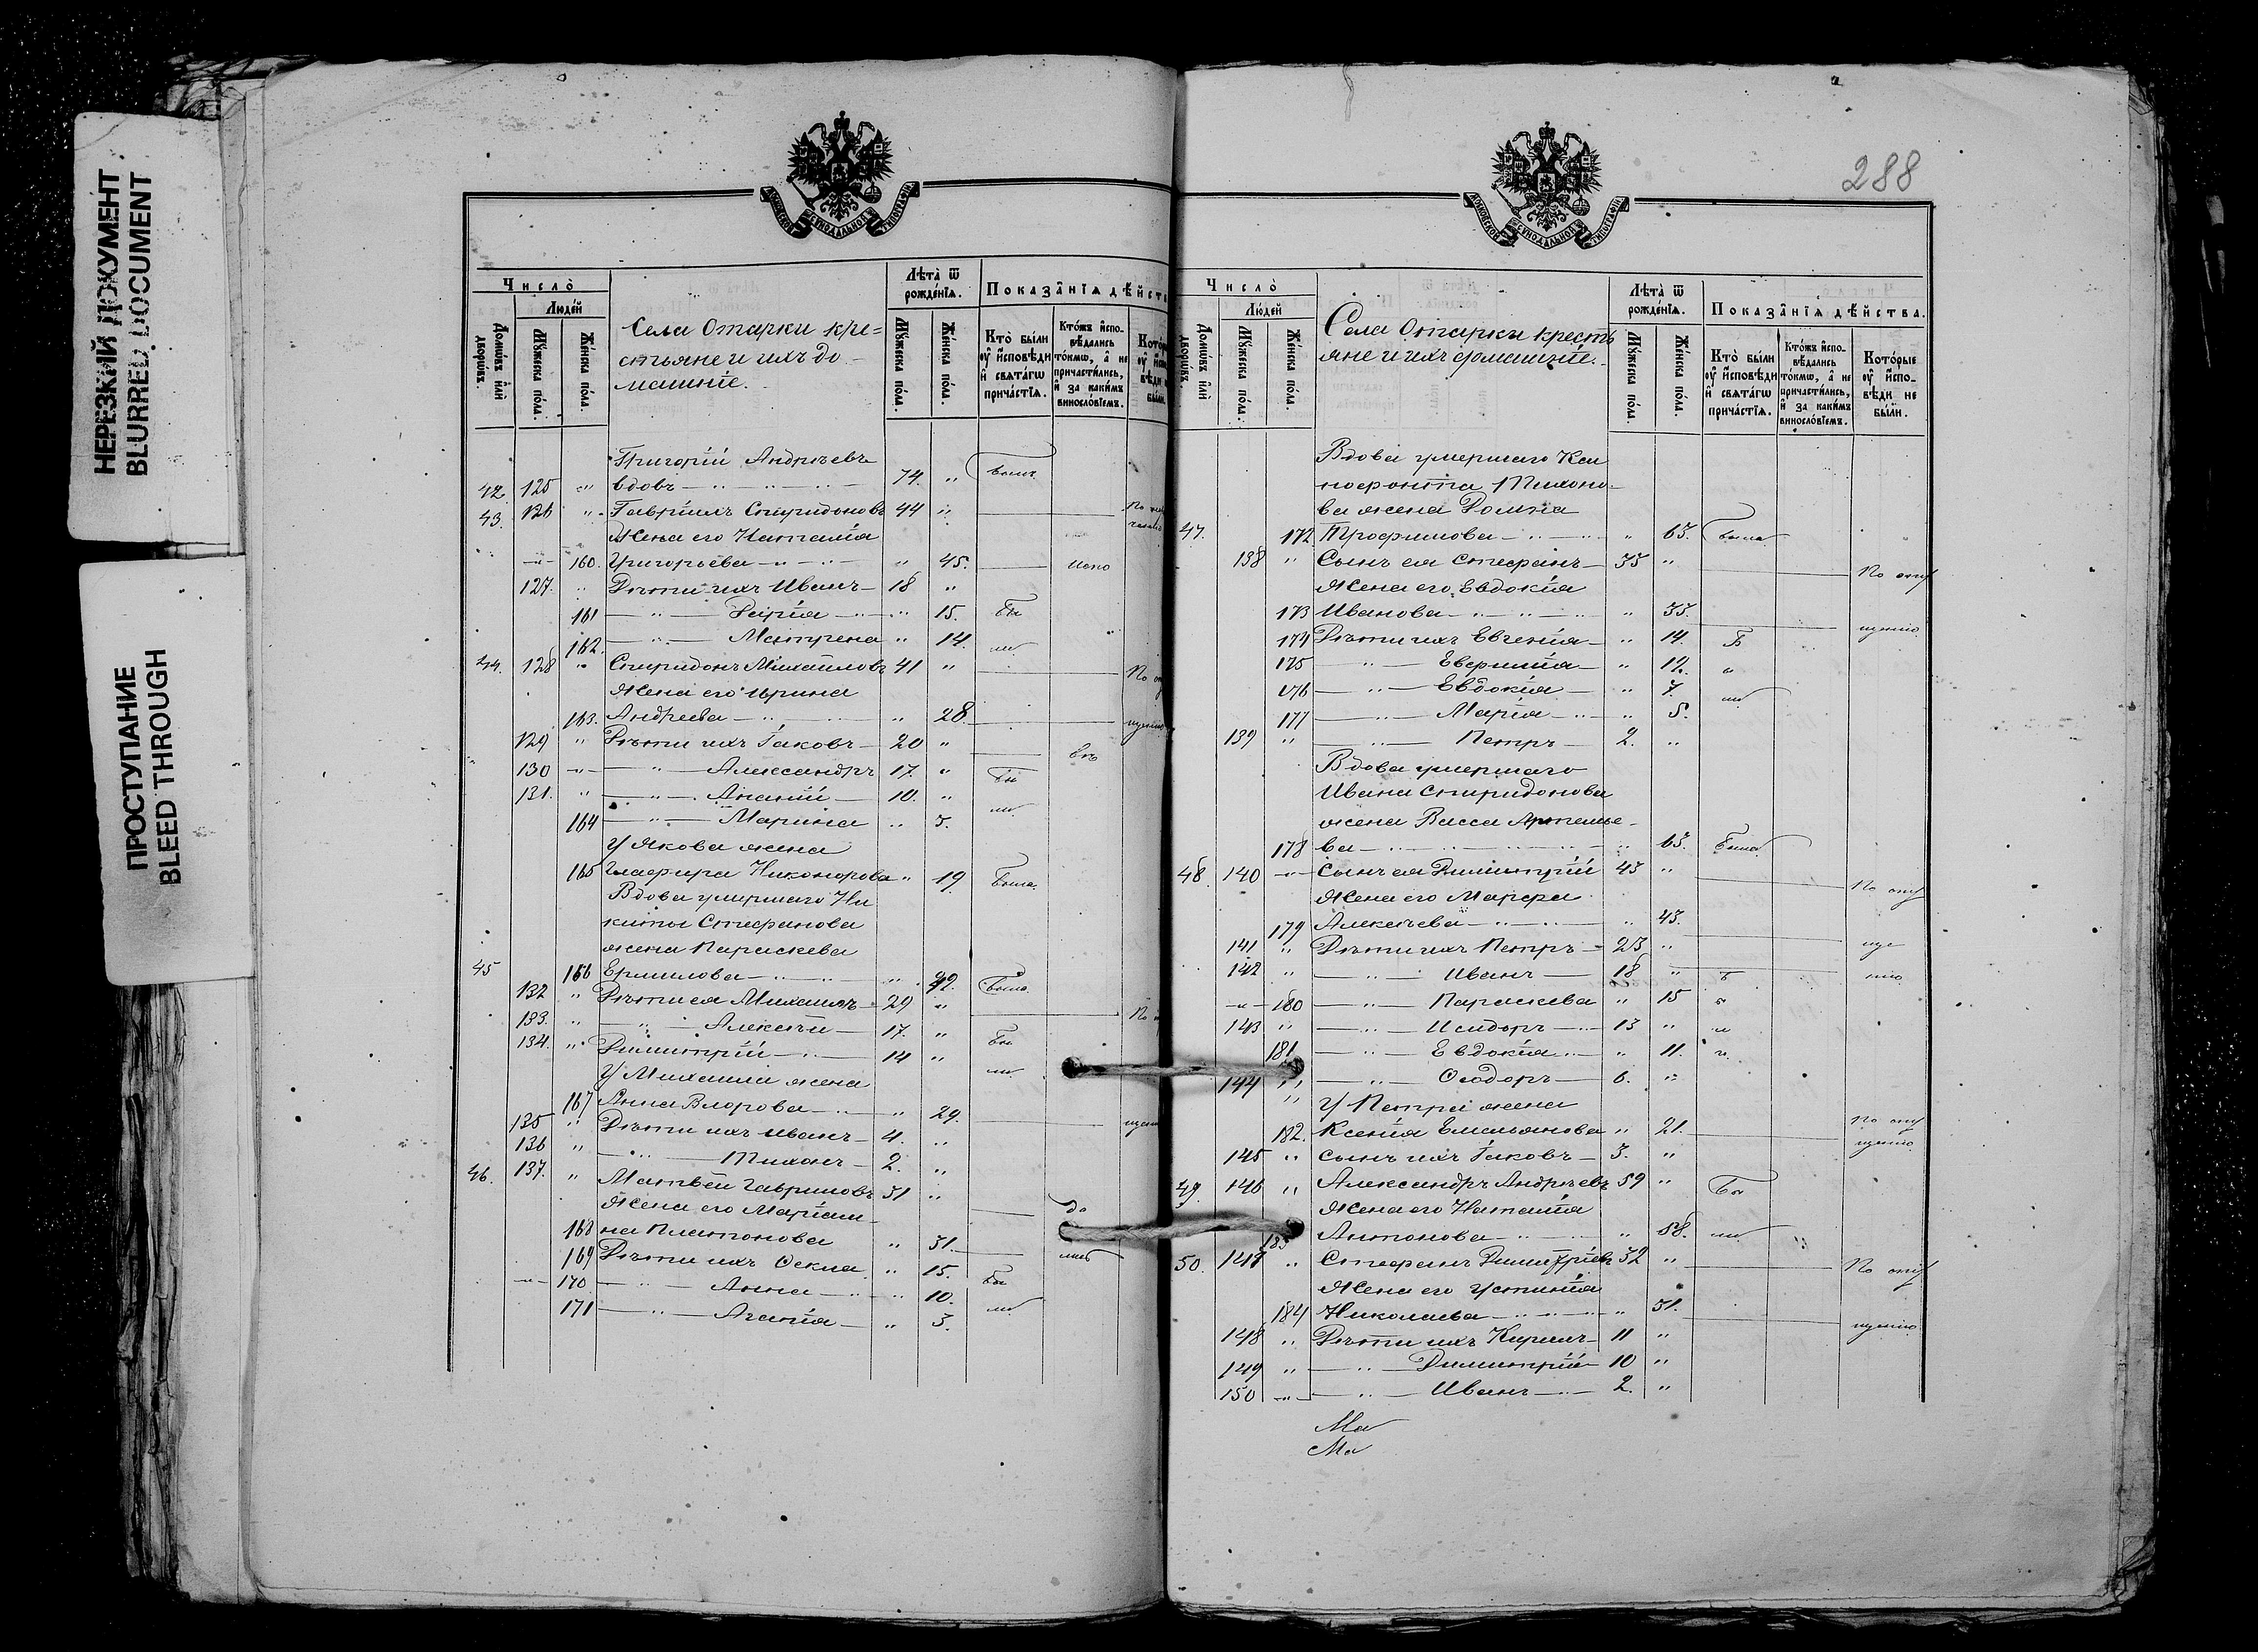 НЕРЕЗКИЙ ДОКУМЕНТ
BLURRED DOCUMENT
ПРОСТУПАНИЕ
BLEED THROUGH
МОСКОВСКОЙ СѴНОДАЛЬНОЙ ТИПОГРАФІИ
Число
Людей
Домѡвъ или дворѡвъ.
Мужеска пола.
Женска пола.
Села Отарки кре=
стьяне и ихъ до-
машніе.
Лѣта ѿ рожденія.
Мужеска пола.
Женска пола.
Показанія дѣйств
Кто были оу исповѣди и свѧтагѡ причастїѧ.
Ктожъ исповѣдались токмѡ, а не причастились, и за какимъ винословїемъ.
Григорій Андреевъ
42. 125 " вдовъ 74. " былъ
43. 126 " Гавріилъ Спиридоновъ 44 "
Жена его Наталія
160. Григорьева " 45.
127. " Дѣти ихъ Иванъ 18 "
161 Дарія " 15. Бы
162. Матрена " 14. ли
44. 128 " Спиридонъ Михайловъ 41 " По оп
Жена его Ирина
163. Андреева " 28.
129 " Дѣти ихъ Іаковъ 20 "
130 Александръ 17. " Бы
131. " Ананій 10. " ли
164 Марина " 5.
У Якова жена
165 Глафира Никонорова " 19 Была.
Вдова умершаго Ни
киты Стефанова
жена Параскева
45 166 Ермилова " 42. Была
132 " Дѣти ея Михаилъ 29 "
133. " Алексѣй 17. " Бы
134. " Димитрій 14 " ли
У Михаила жена
167 Анна Влорова " 29.
135 " Дѣти ихъ Иванъ 4. "
136 " Тихонъ 2. "
46. 137. " Матвей Гавриловъ 31 "
Жена его Маріам-
168 на Платонова " 31.
169 Дѣти ихъ Ѳекла " 15. Бы
170 Анна " 10. ли
171 Агапія " 3.
288
МОСКОВСКОЙ СѴНОДАЛЬНОЙ ТИПОГРАФІИ
Число
Людей
Домѡвъ или дворѡвъ.
Мужеска пола.
Женска пола.
Села Отарки кресть
яне и ихъ домашніе.
Лѣта ѿ рожденія.
Мужеска пола.
Женска пола.
Показанія дѣйства.
Кто были оу исповѣди и свѧтагѡ причастїѧ.
Ктожъ исповѣдались токмѡ, а не причастились, и за какимъ винословїемъ.
Которые оу исповѣди не были.
Вдова умершаго Ксе
нофонта Тихоно-
ва жена Домна
47. 172. Трофимова " 63. была
138 " Сынъ ея Стефанъ 35 " По опу
Жена его Евдокія
173 Иванова " 35. щенію
174 Дѣти ихъ Евгенія " 14. Б
175 Евфимія " 12. ы
176 Евдокія " 7. ли
177 Марія " 5.
139 " Петръ 2. "
Вдова умершаго
Ивана Спиридонова
жена Васса Артемье-
178 ва " 65. Была
48. 140 Сынъ ея Димитрій 43 " По опу
Жена его Марфа
179 Алексѣева " 43.
141 " Дѣти ихъ Петръ 23 " ще
142 " Иванъ 18 " нію
180 Параскева " 15
143 " Исидоръ 13 "
181 Евдокія " 11.
144 " Ѳеодоръ 6. "
У Петра жена
182. Ксенія Емельянова " 21. По опу
щенію
145 " Сынъ ихъ Іаковъ 3. "
49. 146 " Александръ Андреевъ 59 " Бы
Жена его Наталія
183 Антонова " 58. ли
50. 147 " Стефанъ Димитріевъ 32 " По опу
Жена его Устинія
184 Николаева " 31. щенію
148 " Дѣти ихъ Кирилъ 11 "
149 " Димитрій 10 "
150 Иванъ 2. "
Ма
Ма